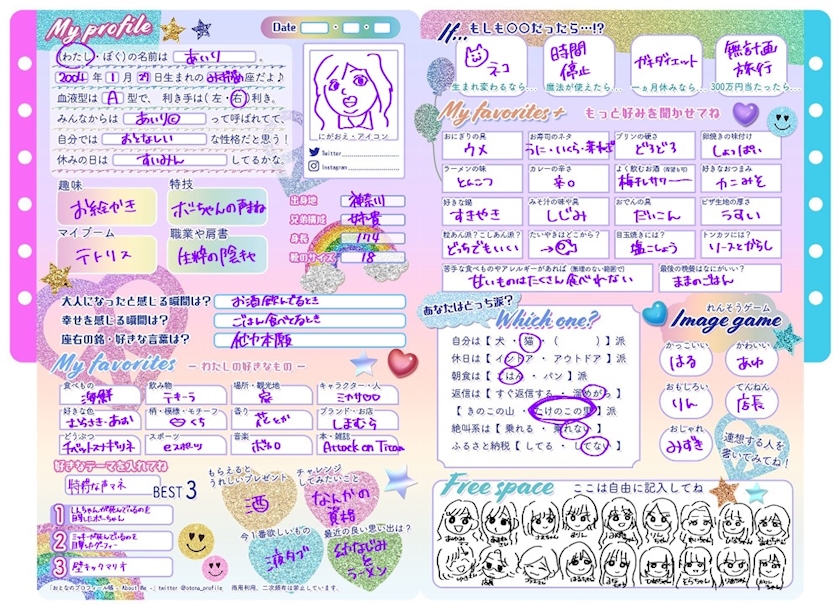 My profile
Date
わたし・ぼくの名前は あいり 。
2004年1月 日生まれの 座だよ♪
血液型は A 型で、利き手は(左・右)利き。
みんなからは あいり って呼ばれてて、
自分では おとなしい な性格だと思う!
休みの日は すいみん してるかな。
にがおえ・アイコン
Twitter
Instagram
趣味
お絵かき
特技
ボーちゃんの声まね
マイブーム
テトリス
職業や肩書
生粋の陰キャ
出身地 神奈川
兄弟構成 姉貴
身長 174
靴のサイズ 18
大人になったと感じる瞬間は? お酒飲んでるとき
幸せを感じる瞬間は? ごはん食べてるとき
座右の銘・好きな言葉は? 他力本願
My favorites －わたしの好きなもの－
食べもの
海鮮
飲み物
テキーラ
場所・観光地
家
キャラクター・人
ミカサ
好きな色
むらさき・あお
柄・模様・モチーフ
香り
ブランド・お店
しまむら
どうぶつ
スポーツ
eスポーツ
音楽
ボカロ
本・雑誌
Attack on Titan
好きなテーマを入れてね
特技な声マネ
BEST 3
1
2
3 壁キックマリオ
もらえるとうれしいプレゼント
酒
チャレンジしてみたいこと
なんかの資格
今1番欲しいもの
液タブ
最近の良い思い出は?
幼なじみとラーメン
「おとなのプロフィール帳 - About Me -」twitter @otona_profile 商用利用、二次頒布は禁止しています。
If... もしも〇〇だったら…!?
ネコ
生まれ変わるなら…
時間停止
魔法が使えたら…
ガチダイエット
一ヵ月休みなら…
無計画旅行
300万円当たったら…
My favorites+ もっと好みを聞かせてね
おにぎりの具
ウメ
お寿司のネタ
うに・いくら・
プリンの硬さ
どろどろ
卵焼きの味付け
しょっぱい
ラーメンの味
とんこつ
カレーの辛さ
辛口
よく飲むお酒
梅干しサワー
好きなおつまみ
カニみそ
好きな鍋
すきやき
みそ汁の味や具
しじみ
おでんの具
だいこん
ピザ生地の厚さ
うすい
粒あん派?こしあん派?
どっちでもいい
たいやきはどこから?
目玉焼きには?
塩こしょう
トンカツには?
ソースとからし
苦手な食べものやアレルギーがあれば(無理のない範囲で)
甘いものはたくさん食べれない
最後の晩餐はなにがいい?
ままのごはん
あなたはどっち派?
Which one?
自分は【 犬 ・ 猫 ・ ( ) 】派
休日は【 インドア ・ アウトドア 】派
朝食は【 ごはん ・ パン 】派
返信は【 すぐ返信する ・ 溜めがち 】
【 きのこの山 ・ たけのこの里 】派
絶叫系は【 乗れる ・ 乗れない 】
ふるさと納税【 してる ・ してない 】
れんそうゲーム
Image game
かっこいい
はる
かわいい
あゆ
おもしろい
りん
てんねん
店長
おしゃれ
みずき
連想する人を書いてみてね!
Free space ここは自由に記入してね